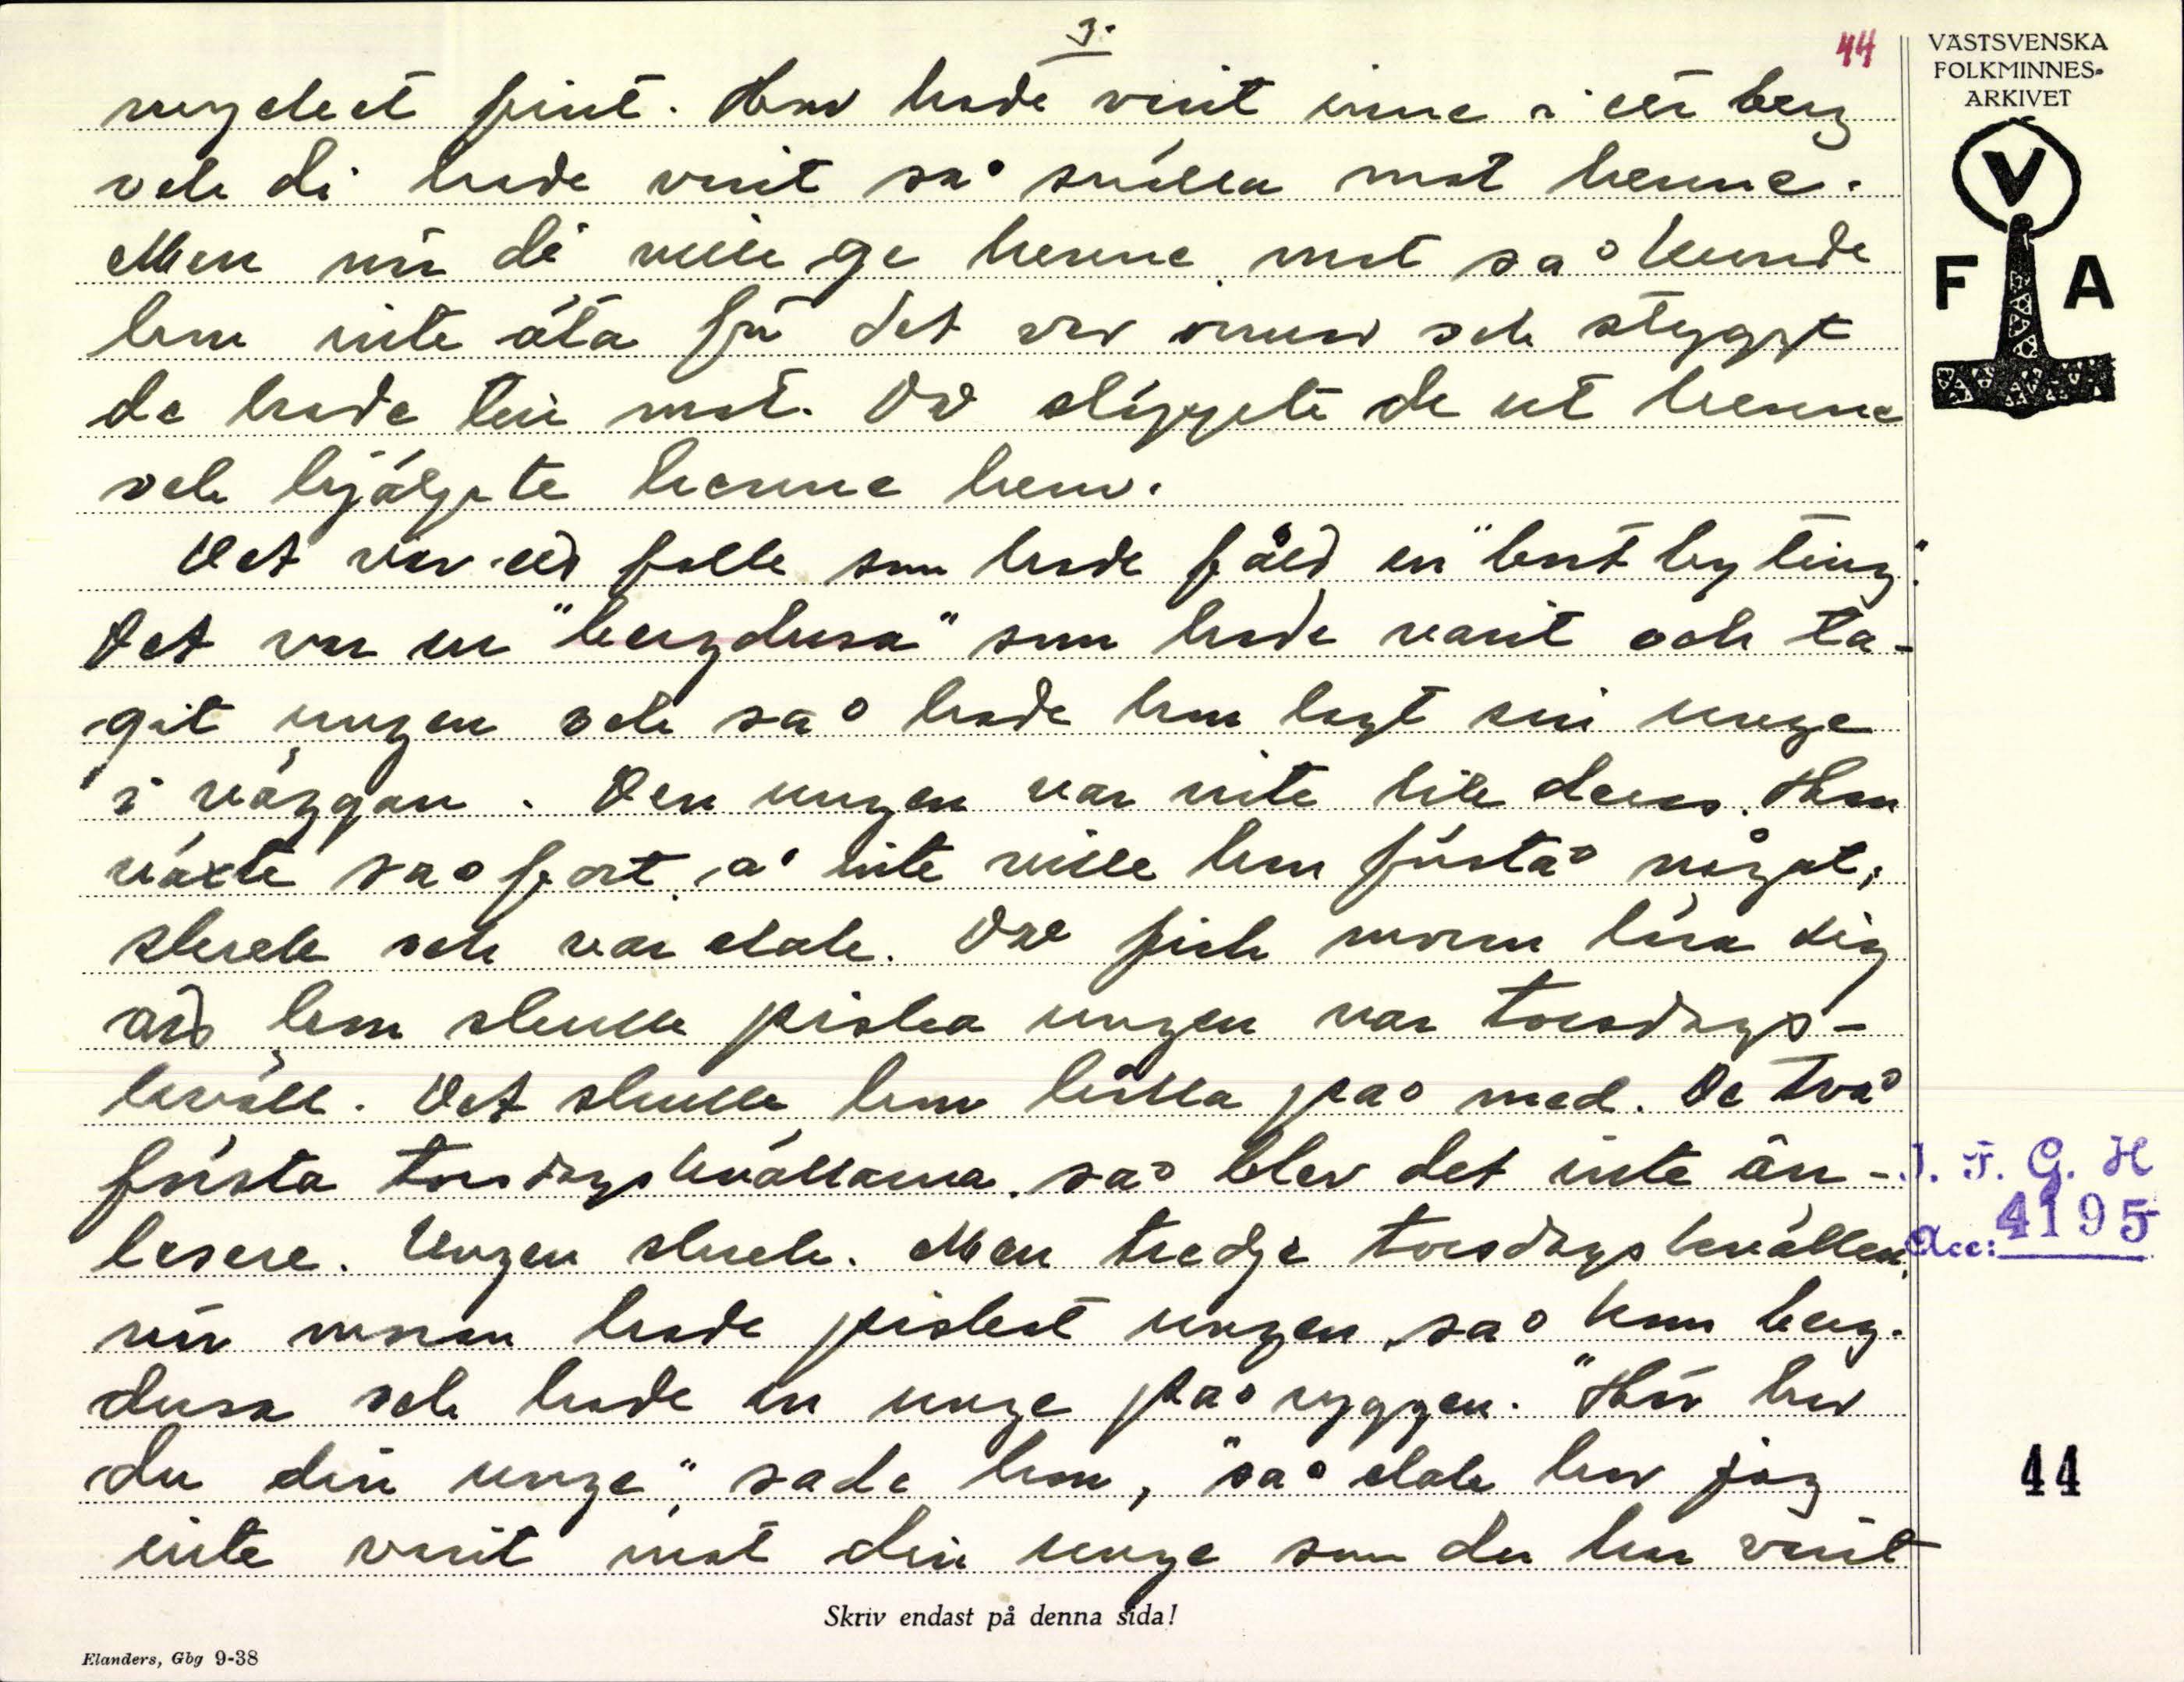 3.
44
mycket fint. Hon hade vart inne i ett berg
och di hade vart så snälla mot henne.
Men när di ville ge henne mat så kunde
hon inte äta för det var ormar och styggt
de hade till mat. Då släppte de ut henne
och hjälpte henne hem.
Det var ett folk som hade fått en "bortbyting".
Det var en "bergdusa" som hade varit och ta-
git ungen och så hade hon lagt sin unge
i vaggan. Den ungen var inte lik deras. Han
växte så fort, å inte ville han förstå något,
skrek och var elak. Då fick morn lära sig
att hon skulle piska ungen var torsdags-
kväll. Det skulle hon hålla på med. De två
första torsdagskvällarna så blev det inte än-
lesere. Ungen skrek. Men tredje torsdagskvällen,
när morn hade piskat ungen, så kom berg-
dusa och hade en unge på ryggen. "Här har
du din unge", sade hon, "så elak har jag
inte varit mot din unge som du har varit
VÄSTSVENSKA
FOLKMINNES-
ARKIVET
V
F A
I. F. G. H
Acc: 4195
44
Skriv endast på denna sida!
Elanders, Gbg 9-38